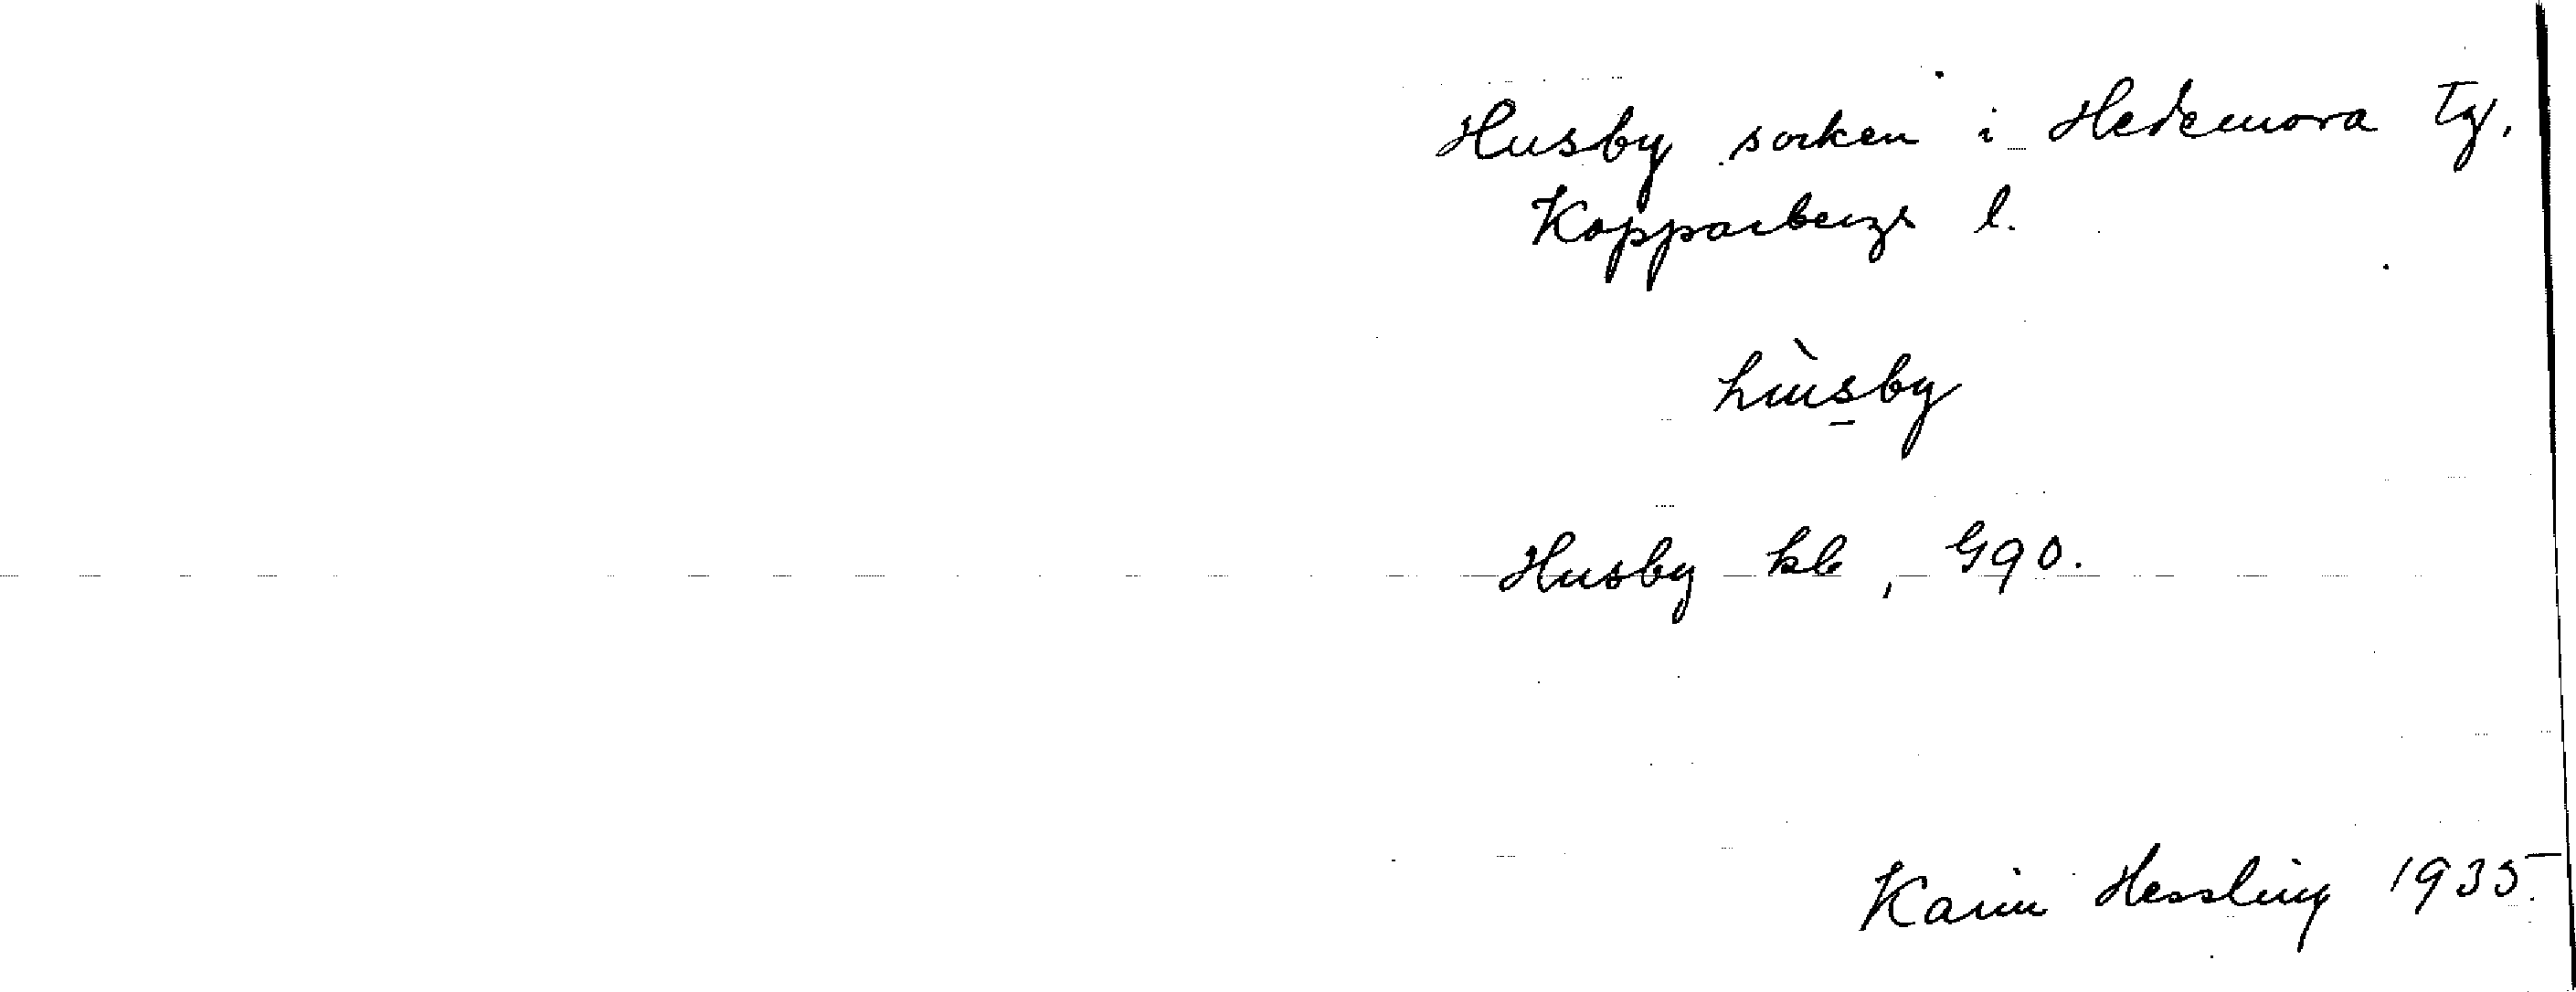 Husby socken i Hedemora tg.
Kopparbergs l.
hùsby
Husby kb, G90.
Karin Hessling 1935.